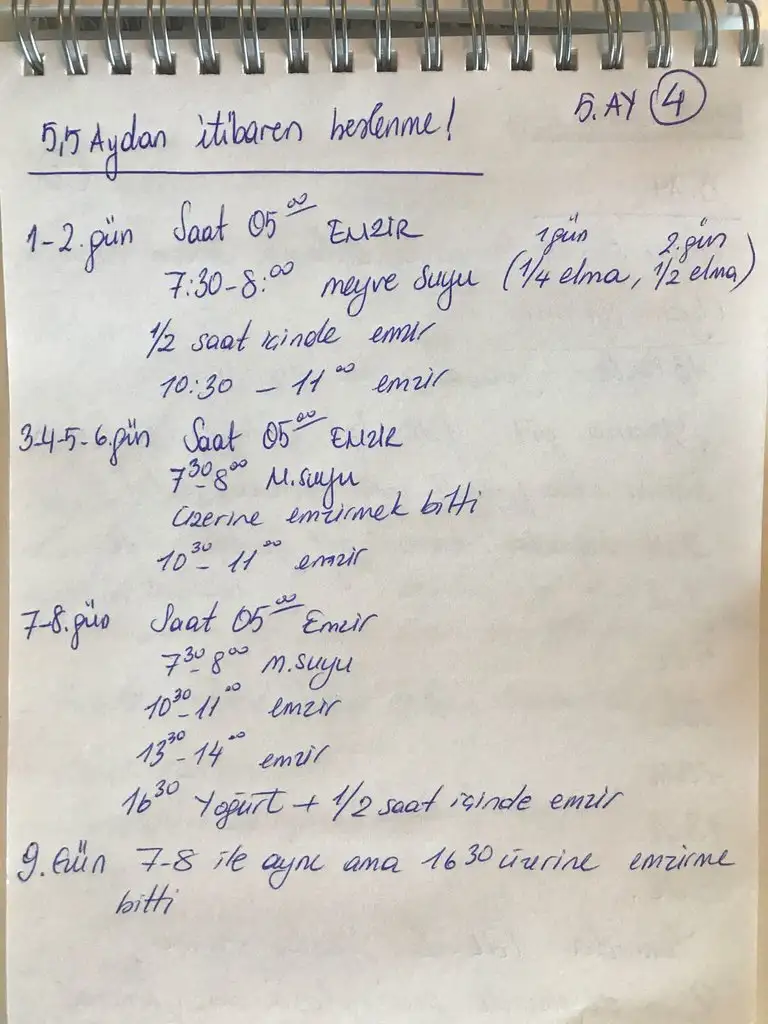 5. AY 4
5,5 Aydan itibaren beslenme!
1-2. gün Saat 05 00 EMZİR 1 gün 2. gün
7:30-8:00 meyve suyu (1/4 elma, 1/2 elma)
1/2 saat içinde emzir
10:30 - 11 00 emzir
3-4-5-6. gün Saat 05 00 EMZİR
7 30-8 00 M.suyu
üzerine emzirmek bitti
10 30- 11 00 emzir
7-8. gün Saat 05 00 Emzir
7 30-8 00 M.suyu
10 30-11 00 emzir
13 30-14 00 emzir
16 30 Yoğurt + 1/2 saat içinde emzir
9. Gün 7-8 ile aynı ama 16 30 üzerine emzirme
bitti